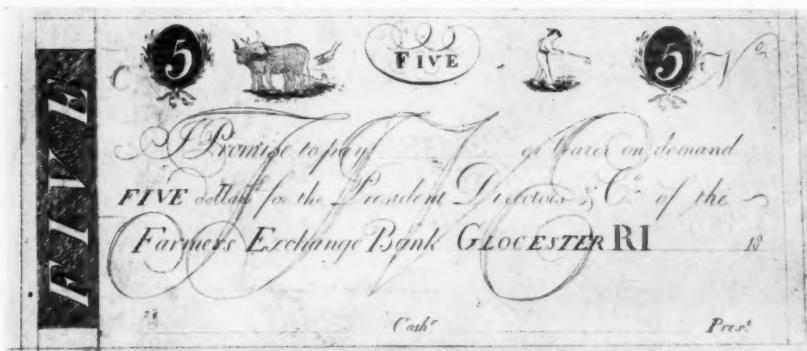 FIVE
C 5 FIVE 5 No.
FIVE
I Promise to pay or bearer on demand
FIVE dollars for the President Directors & Co. of the
Farmers Exchange Bank GLOCESTER RI 18
Cashr Prest